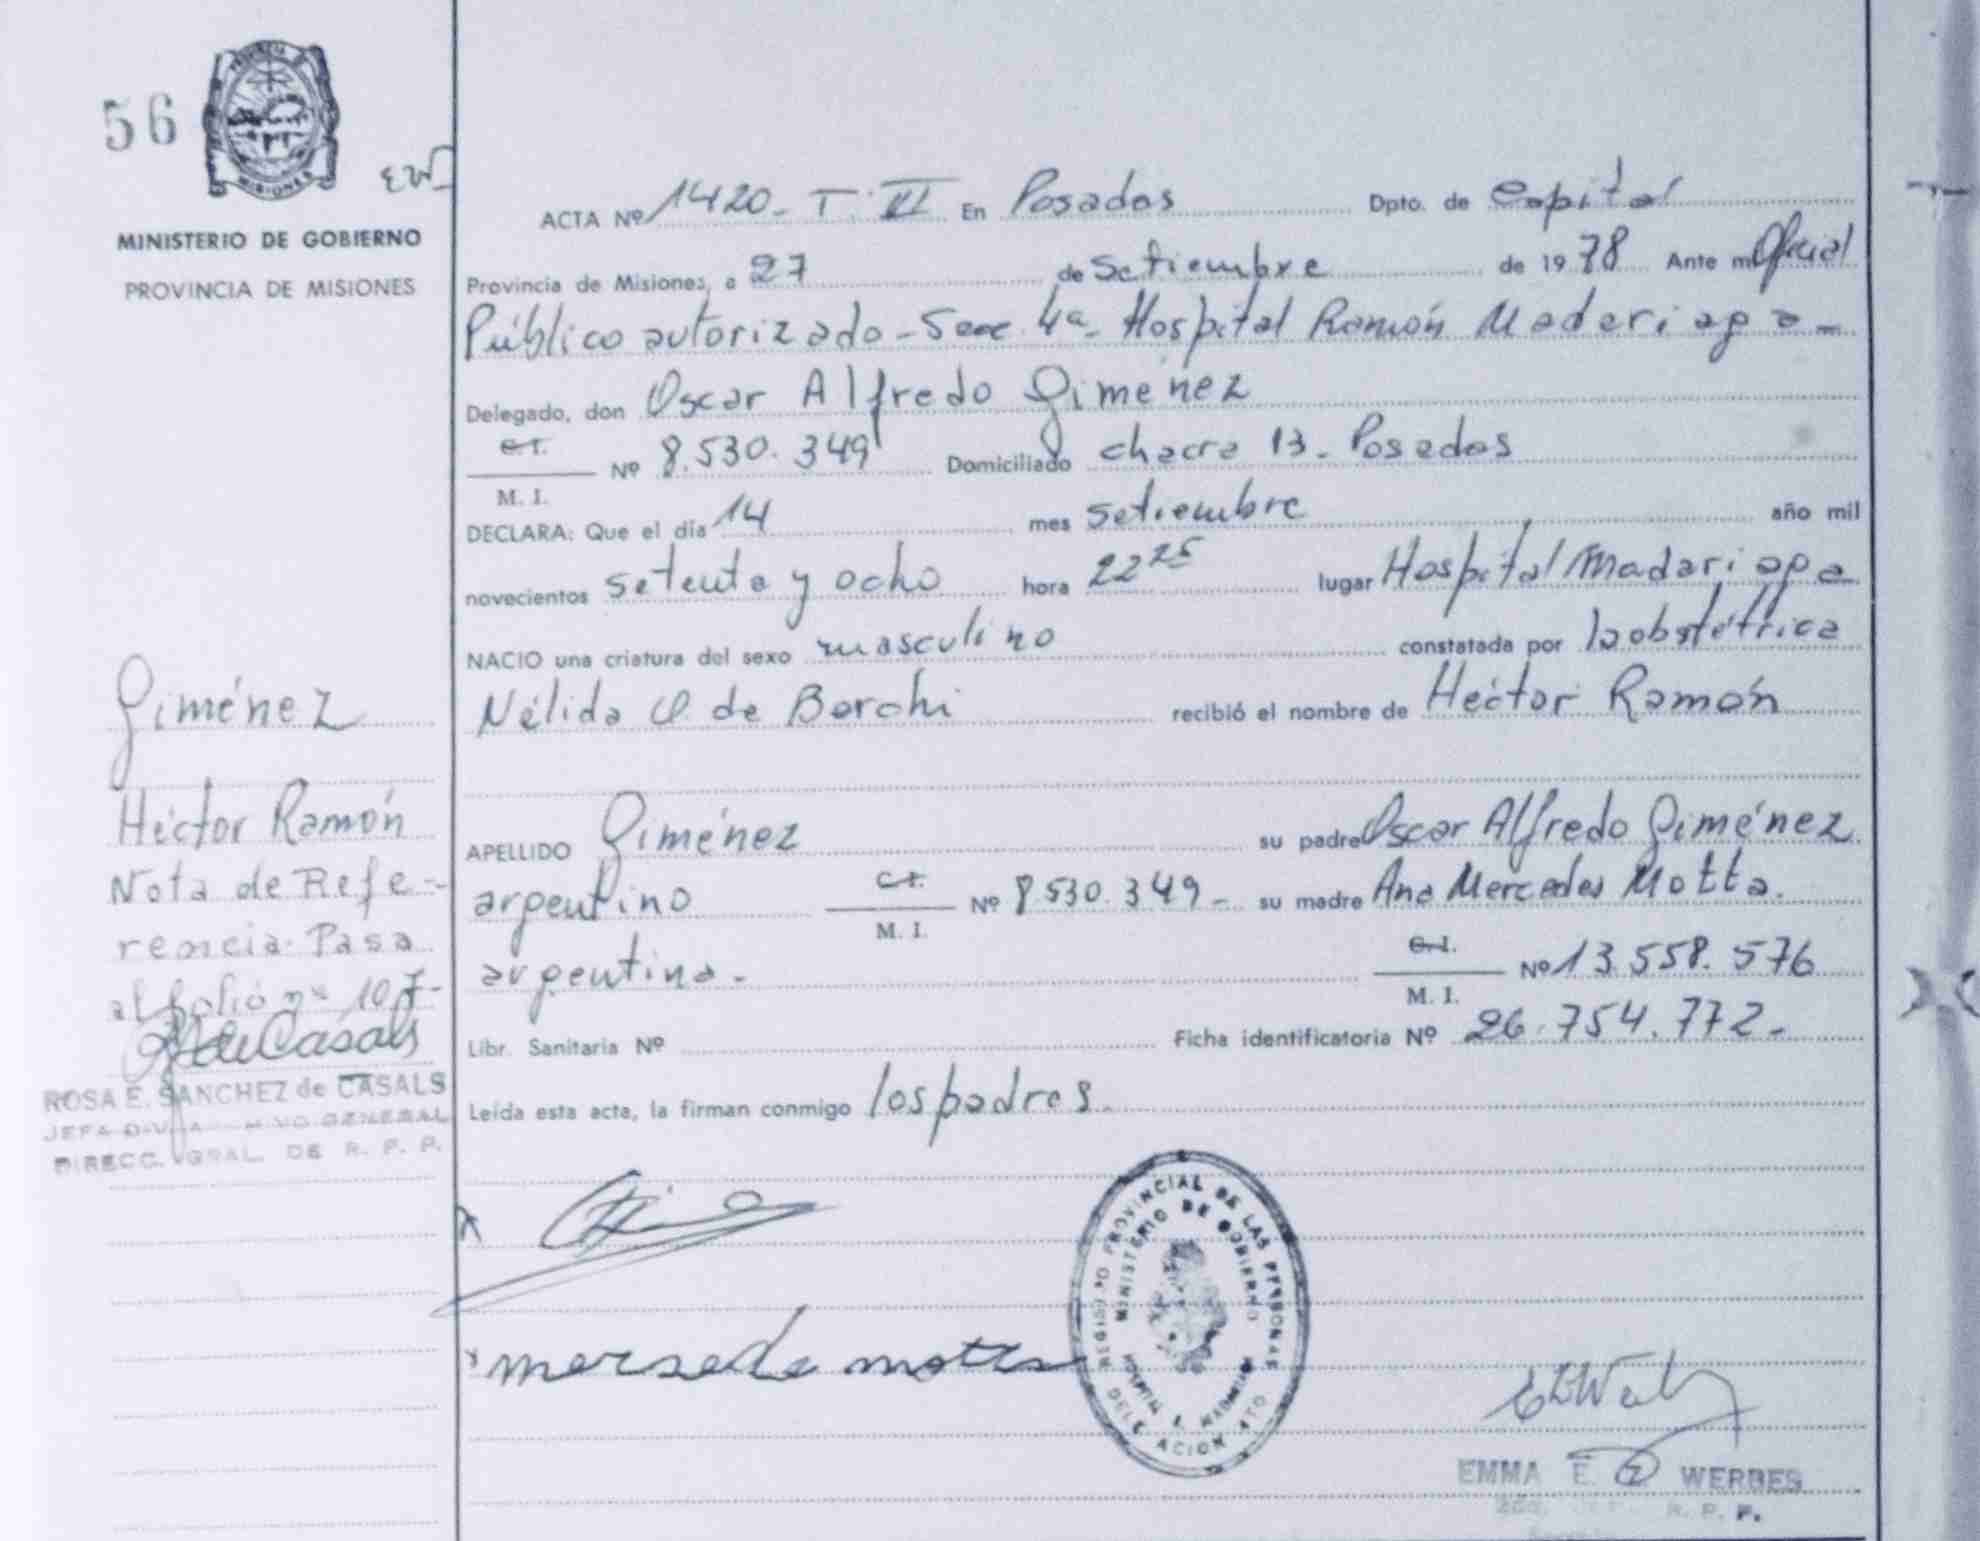 56
PROVINCIA DE
MISIONES
EW
MINISTERIO DE GOBIERNO
PROVINCIA DE MISIONES
ACTA Nº 1420 - T. VI En Posadas Dpto. de Capital
Provincia de Misiones, a 27 de Setiembre de 1978 Ante mi Oficial
Público autorizado - Secc. 4a - Hospital Ramón Maderiaga -
Delegado, don Oscar Alfredo Giménez
C.I.
M. I. Nº 8.530.349 Domiciliado chacra 13 - Posadas
DECLARA: Que el día 14 mes setiembre año mil
novecientos setenta y ocho hora 22 25 lugar Hospital Madariaga
NACIO una criatura del sexo masculino constatada por la obstétrica
Nélida O. de Borchi recibió el nombre de Héctor Ramón
APELLIDO Giménez su padre Oscar Alfredo Giménez
argentino C.I.
M. I. Nº 8.530.349 - su madre Ana Mercedes Motta.
argentina - C.I.
M. I. Nº 13.558.576
Libr. Sanitaria Nº Ficha identificatoria Nº 26.754.772 -
Leída esta acta, la firman conmigo los padres.
Giménez
Héctor Ramón
Nota de Refe-
rencia: Pasa
al folio nº 107-
de Casals
ROSA E. SANCHEZ de CASALS
JEFA GENERAL
DIRECC. GRAL. DE R. P. P.
x
x mersede motta
REGISTRO PROVINCIAL DE LAS PERSONAS
MINISTERIO DE GOBIERNO
HOSPITAL R. MADARIAGA
DELEGACION 4TO
EMMA E. WERBES
R. P. P.